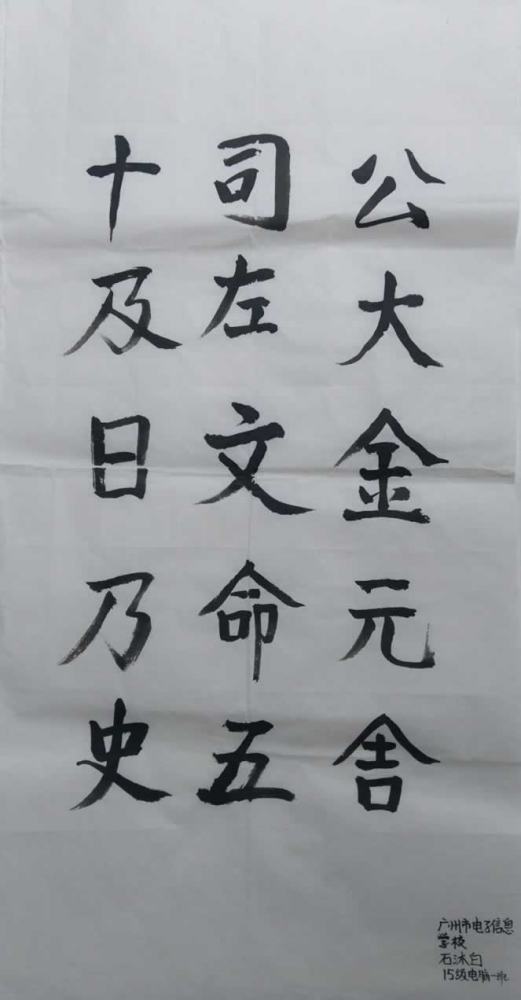 公大金元舍
司左文命五
十及日乃史
广州市电子信息
学校
石沐白
15级电脑一班